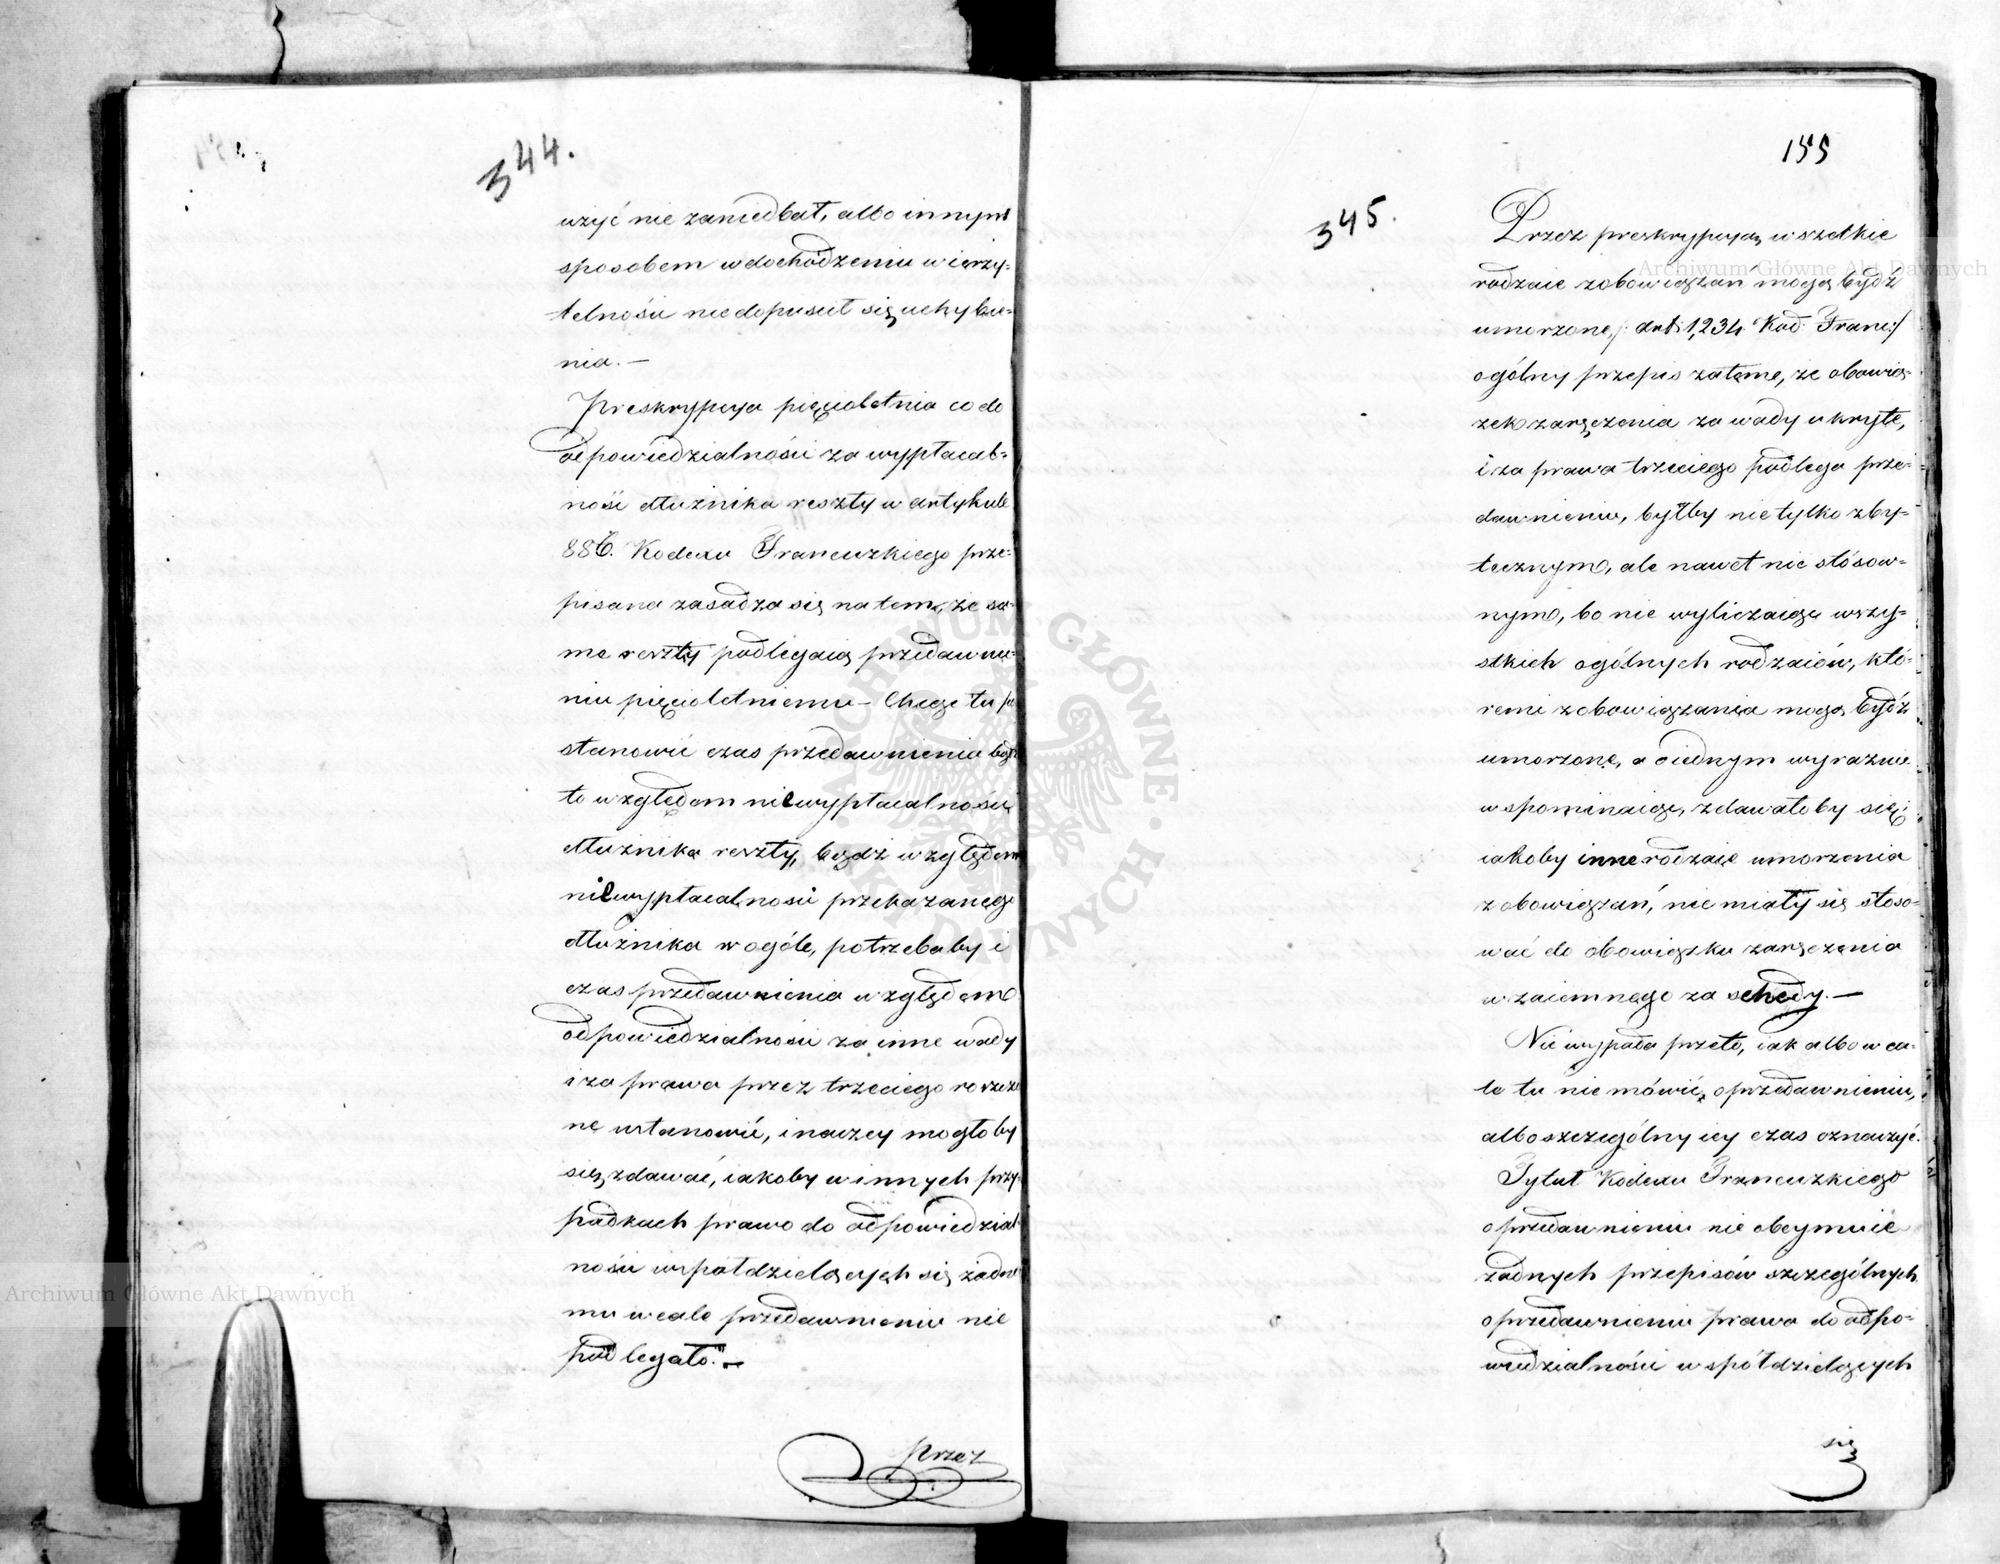 344.
użyć nie zaniedbał, albo innym
sposobem w dochodzeniu wierzy=
telności nie dopuścił się uchybie=
nia. —
Preskrypcya pięcioletnia co do
odpowiedzialności za wypłacal=
ność dłużnika reszty w artykule
886. Kodexu Francuzkiego prze=
pisana zasadza się na tem, że sa=
me reszty podlegaią przedawnie=
niu pięcioletniemu — Chcąc tu po
stanowić czas przedawnienia bądź
to względem niewypłacalności
dłużnika reszty, bądź względem
niewypłacalności przekazanego
dłużnika w ogóle, potrzebaby i
czas przedawnienia względem
odpowiedzialności za inne wady
i za prawa przez trzeciego rosczo
ne ustanowić, inaczey mogłoby
się zdawać, iakoby w innych przy=
padkach prawo do odpowiedzial=
ności współdzielących się żadne
mu wcale przedawnieniu nie
podlegało." —
Przez
155
345.
Przez preskrypcyą wszelkie
rodzaie zobowiązań mogą bydź
umorzone, /: art: 1,234 Kod: Franc:/
ogólny przepis zatéme, że obowią=
zek zaręczenia za wady ukryte,
i za prawa trzeciego podlega prze=
dawnieniu, byłby nie tylko zby=
tecznym, ale nawet nie stósow=
nym, bo nie wyliczaiąc wszy=
stkich ogólnych rodzaiów, któ=
remi zobowiązania mogą bydź
umorzone, a o iednym wyraźnie
wspominaiąc, zdawałoby się,
iakoby inne rodzaie umorzenia
zobowiązań, nie miały się stoso=
wać do obowiązku zaręczenia
wzaiemnego za schedy. —
Nie wypada przeto, iak albo wca=
le tu nie mówić, o przedawnieniu,
albo szczególny iey czas oznaczyć.
Tytuł Kodexu Francuzkiego
o przedawnieniu nie obeymuie
żadnych przepisów szczególnych
o przedawnieniu prawa do odpo=
wiedzialności współdzielących
się
Archiwum Główne Akt Dawnych
Archiwum Główne Akt Dawnych
ARCHIWUM GŁÓWNE AKT DAWNYCH